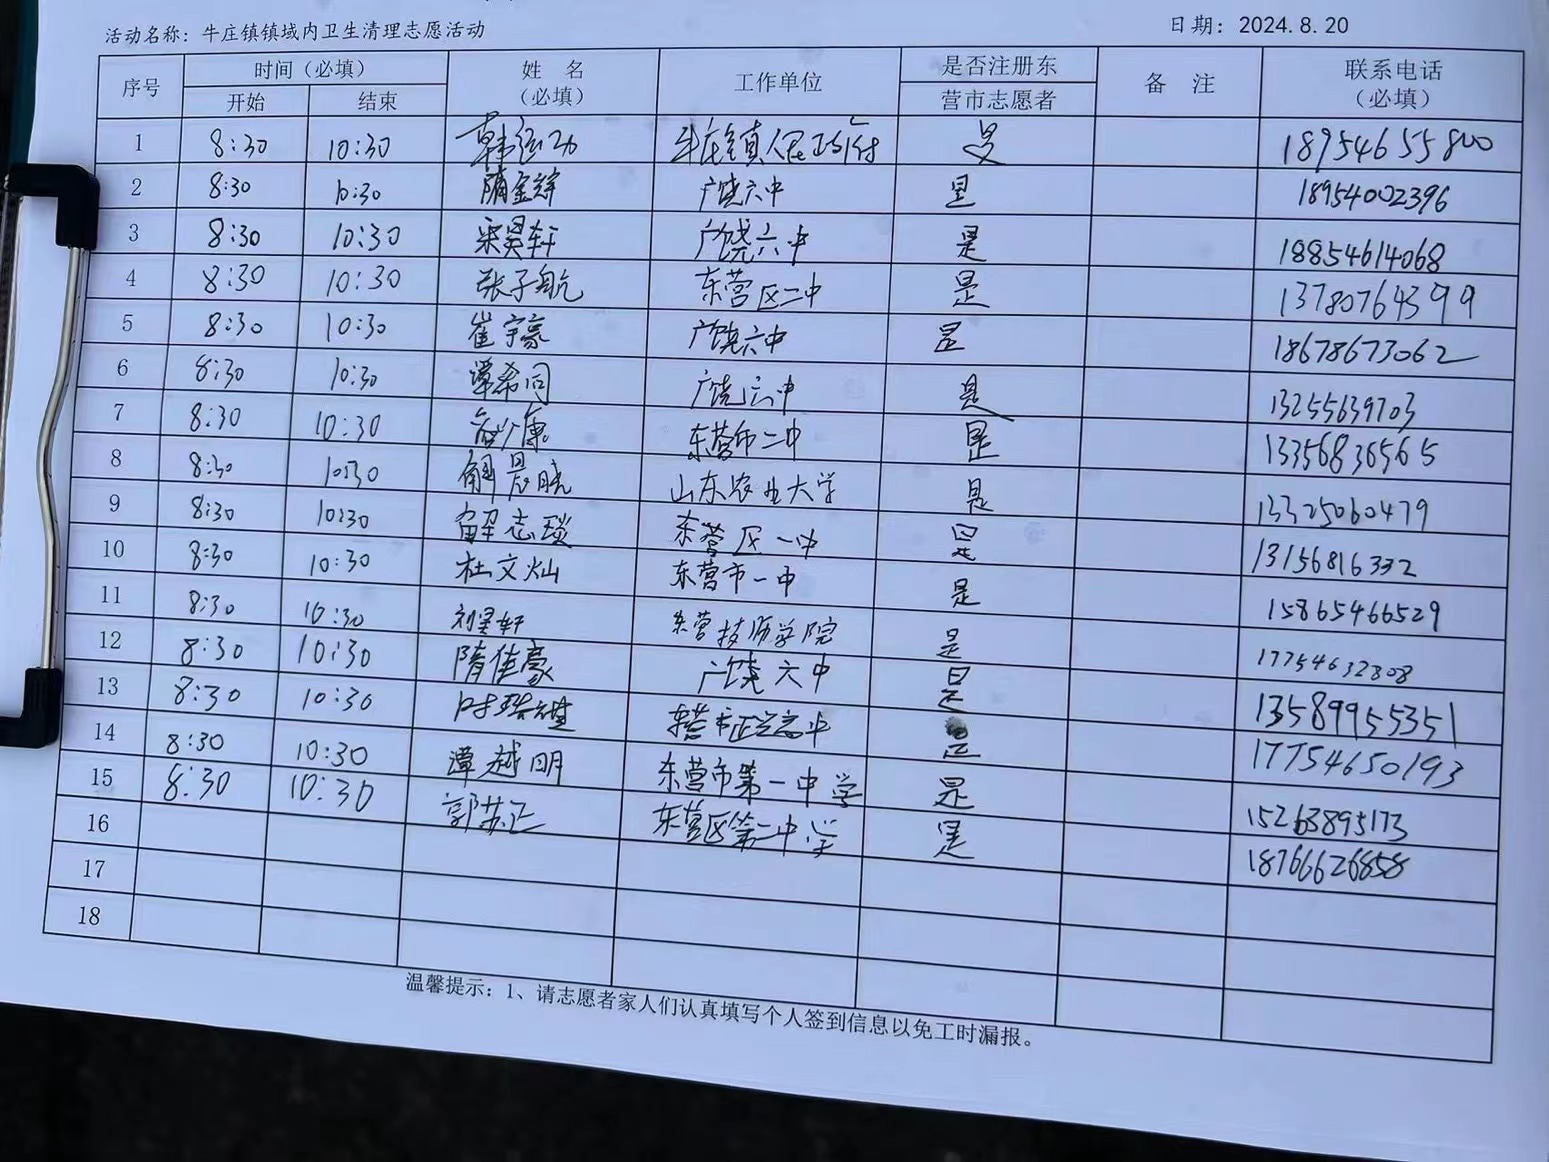 活动名称：牛庄镇镇域内卫生清理志愿活动 日期：2024.8.20
序号 时间（必填） 姓 名（必填） 工作单位 是否注册东营市志愿者 备 注 联系电话（必填）
开始 结束
1 8:30 10:30 韩运功 牛庄镇人民政府 是 18954655800
2 8:30 10:30 隋金锌 广饶六中 是 18954002396
3 8:30 10:30 宋昊轩 广饶六中 是 18854614068
4 8:30 10:30 张子航 东营区二中 是 13780764399
5 8:30 10:30 崔宇豪 广饶六中 是 18678673062
6 8:30 10:30 谭希同 广饶六中 是 13255639703
7 8:30 10:30 东营市二中 是 13356836565
8 8:30 10:30 解晨晓 山东农业大学 是 13325060479
9 8:30 10:30 留志琰 东营区一中 是 13156816332
10 8:30 10:30 杜文灿 东营市一中 是 15865466529
11 8:30 10:30 刘昊轩 东营技师学院 是 17754632308
12 8:30 10:30 隋佳豪 广饶六中 是 13589955351
13 8:30 10:30 是 17754650193
14 8:30 10:30 谭越明 东营市第一中学 是 15263895173
15 8:30 10:30 郭苏正 东营区第二中学 是 18766626858
16
17
18
温馨提示：1、请志愿者家人们认真填写个人签到信息以免工时漏报。